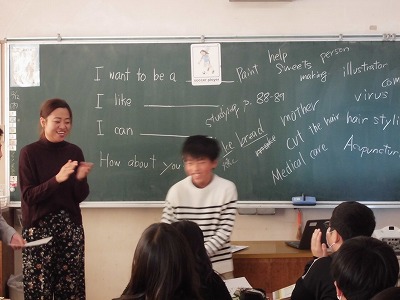 I want to be a
soccer player
I like
I can
How about you
Paint help person
Sweets making illustrator
studying, p. 88-89
virus
mother
bread
cut the hair hair styli
Medical care Acupunctur